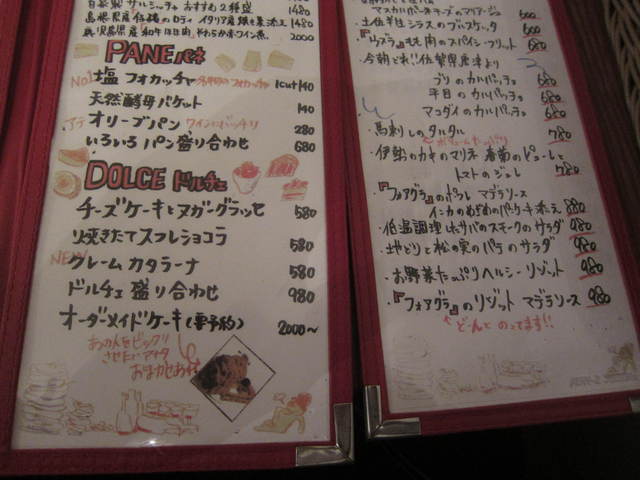 自家製サルシッチャ おすすめ2種盛 1480
1480
鹿児島県産 和牛ほほ肉 やわらか赤ワイン煮 2000
PANE パネ
No1 塩フォカッチャ 1cut140
天然酵母バケット 140
オリーブパン ワインにバッチリ 280
いろいろパン盛り合わせ 680
DOLCE ドルチェ
チーズケーキとヌガーグラッセ 580
焼きたてスフレショコラ 580
NEW クレームカタラーナ 580
ドルチェ盛り合わせ 980
オーダーメイドケーキ(要予約) 2000〜
あの人をビックリ
させたいアナタ
おまかせあれ
600
・土佐 生シラスのブルスケッタ 600
もも肉のスパイシーフリット 680
・今朝どれ!!佐賀県唐津より
ブリのカルパッチョ 680
平目のカルパッチョ 680
マコダイのカルパッチョ 680
・馬刺しのタルタル 780
・伊勢のカキのマリネ 春菊のピューレと
トマトのジュレ 780
・『フォアグラ』のポワレ マデラソース
880
・低温調理 サバのスモークのサラダ 980
・地どりと松の実のパテのサラダ 980
・お野菜たっぷりヘルシーリゾット 980
・『フォアグラ』のリゾット マデラソース 980
どーんと のってます!!